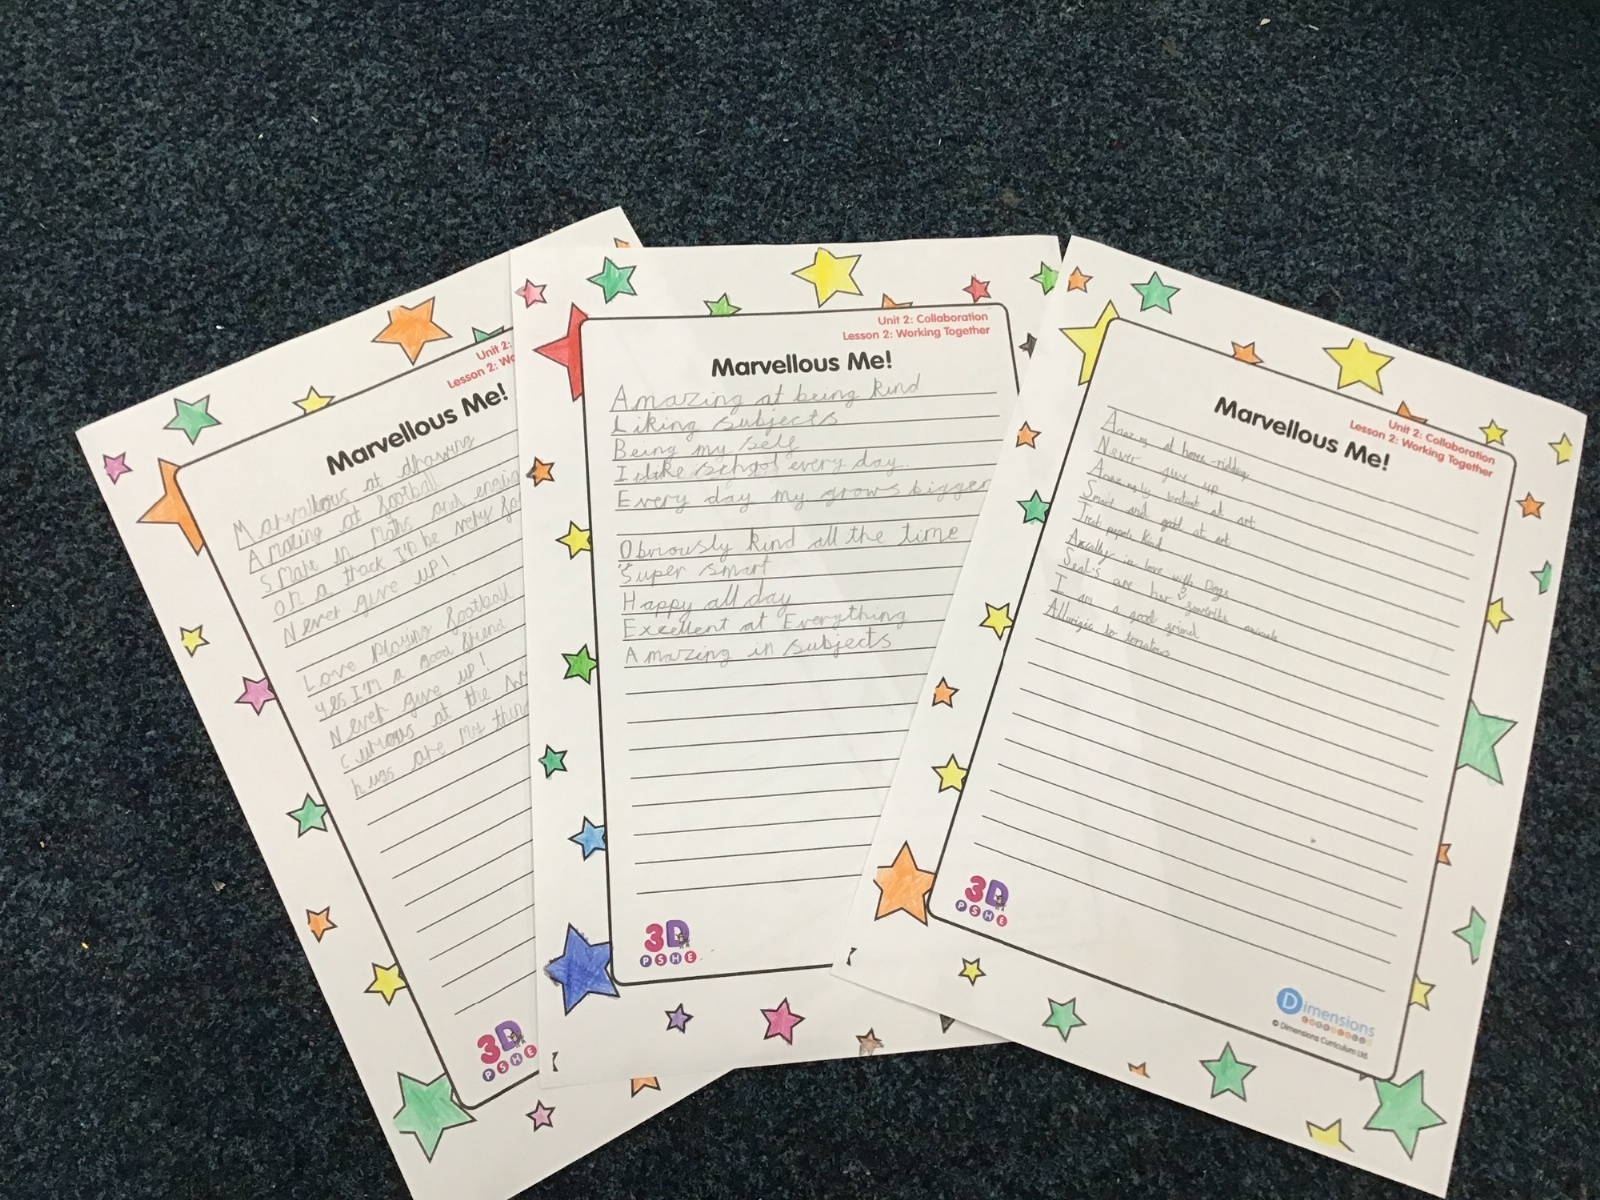 Unit 2:
Lesson 2: Wo
Marvellous Me!
Marvallous at drawing
Amazing at football
Smart in Maths and
on a track I'D be very
Never give up!
Love playing football
yes I'm a good friend
Never give up!
curious at the
hugs are my thing
3D
PSHE
Unit 2: Collaboration
Lesson 2: Working Together
Marvellous Me!
Amazing at being kind
Liking subjects
Being my self
I like school every day.
Every day my grows bigger
Obviously kind all the time
Super smart
Happy all day
Excellent at Everything
Amazing in subjects
3D
PSHE
Unit 2: Collaboration
Lesson 2: Working Together
Marvellous Me!
Amazing at horse-riding
Never give up
Amazingly at art
Smart and good at art
Treat people kind
in love with Dogs
Seal's are her favourite animals
I am a good friend
to tomatoes
3D
PSHE
Dimensions
© Dimensions Curriculum Ltd.